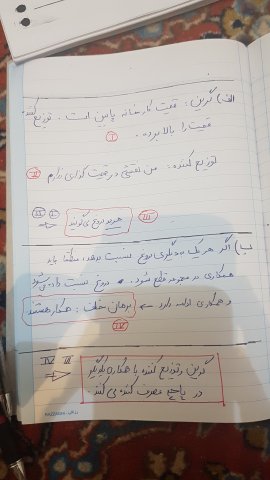 الف) گرین: قیمت کارخانه پایین است. توزیع کننده
قیمت را بالا برده.
I
توزیع کننده: من نقشی در قیمت گذاری ندارم II
I II ⇒ هر دو دروغ می‌گویند III
ب) اگر هر یک به دیگری دروغ نسبت دهد، منطقا باید
همکاری در مجموعه قطع شود. دروغ نسبت داده می‌شود
و همکاری ادامه دارد ← برهان خلف: همکار هستند
IV
IV III ⇒ گرین و توزیع کننده با همکاری یکدیگر
در پاچه مصرف کننده می‌کنند.